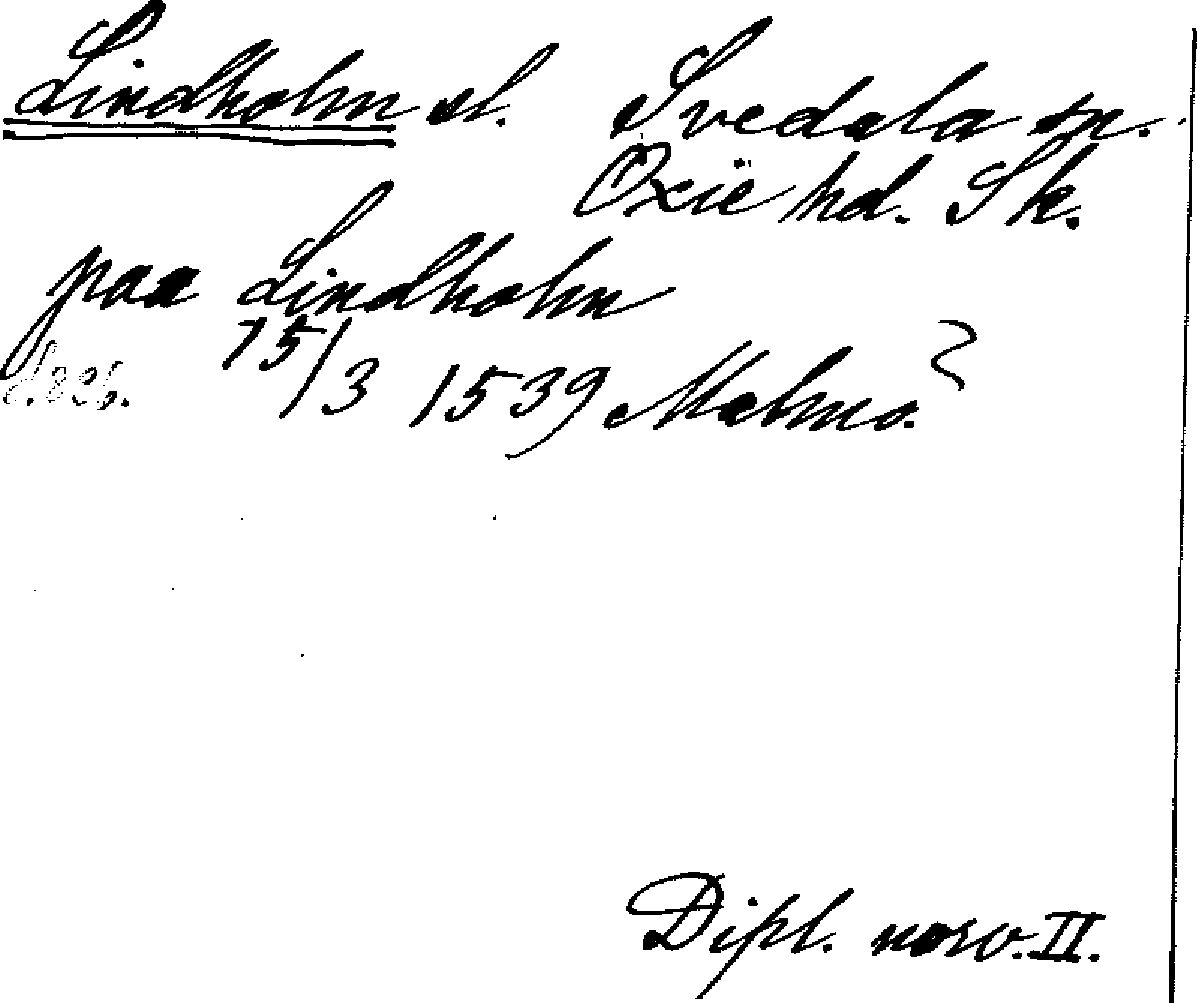 Lindholm sl. Svedala sn.
Oxie hd. Sk.
paa Lindholm
15/3 1539 Malmø.
Dipl. norv. II.